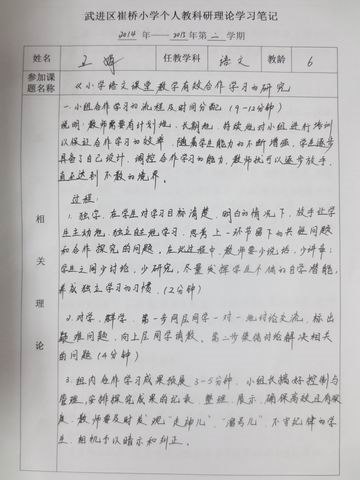 武进区崔桥小学个人教科研理论学习笔记
2014 年——2015 年第 二 学期
姓名 王婷 任教学科 语文 教龄 6
参加课题名称 《小学语文课堂教学有效合作学习的研究
一.小组合作学习的流程及时间分配 (9-12分钟)
说明:教师需要有计划地、长期地、持续地对小组进行培训
以保证合作学习的效率,随着学生能力的不断增强,学生逐步
具备了自己设计、调控合作学习的能力,教师就可以逐步放手,
直至达到不教的境界。
过程:
1.独学,在学生对学习目标清楚、明白的情况下,放手让学
生主动地、独立地学习、思考上一环节留下的共性问题
和合作探究的问题,在此过程中,教师要少说话,少评章;
学生之间少讨论,少研究,尽量发挥学生个体的自学潜能,
养成独立学习的习惯。(2分钟)
2.对学、群学。第一步同层同学一对一地讨论交流,标出
疑难问题,向上层同学请教。第二步集体讨论解决相关
的问题(4分钟)
3.组内合作学习成果预展 3-5分钟。小组长搞好控制与
管理,安排探究成果的记录、整理、展示,确保高效且有效
度。教师要及时发现"走神儿"、"溜号儿"、不守纪律的学
生,相机予以暗示和纠正。
相关理论